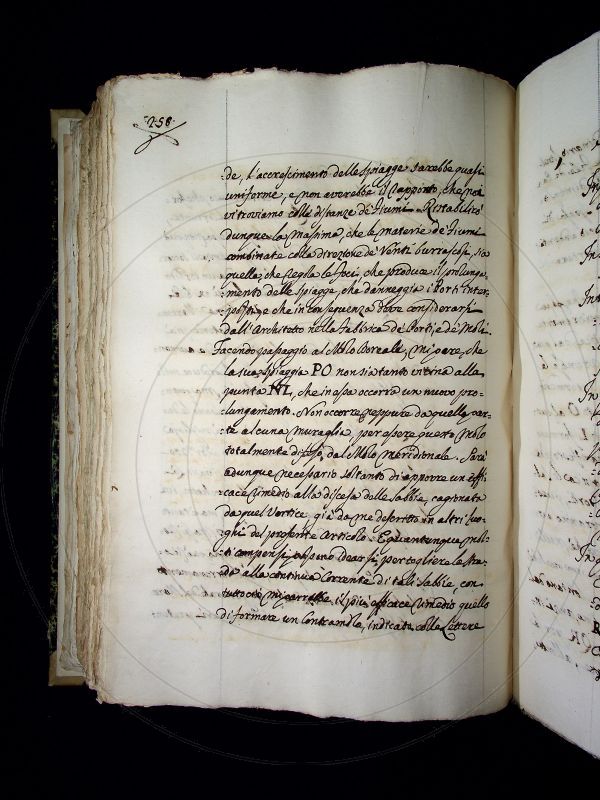 258
de, l'accrescimento delle spiagge sarebbe quasi
uniforme, e non averebbe il rapporto, che noi
vi troviamo colle distanze de' fiumi. Ristabilirò
dunque la Massima, che le materie de' fiumi
combinate colla direzione de' Venti burrascosi, sia
quella, che regola le foci, che produce il prolunga:
:mento delle spiagge, che danneggia i Porti inter:
:posti, e che in conseguenza deve considerarsi
dall'Architetto nella fabbrica de' Porti, e de' Moli.
Facendo passaggio al Molo Boreale, mi pare, che
la sua spiaggia PO non sia tanto vicina alla
punta NL, che in essa occorra un nuovo pro:
:lungamento. Non occorre neppure da quella par:
:te alcuna muraglia, per essere questo Molo
totalmente difeso dal Molo meridionale. Sarà
adunque necessario soltanto di apporre un effi:
:cace rimedio alla discesa delle sabbie, cagionata
da quel Vortice già da me descritto in altri luo:
:ghi del presente Articolo. E quantunque mol:
:ti compensi possino idearsi per togliere la stra:
:da alla continua corrente di tali sabbie, con
tutto ciò mi parrebbe il più efficace rimedio quello
di formare un Contramole, indicato colle Lettere